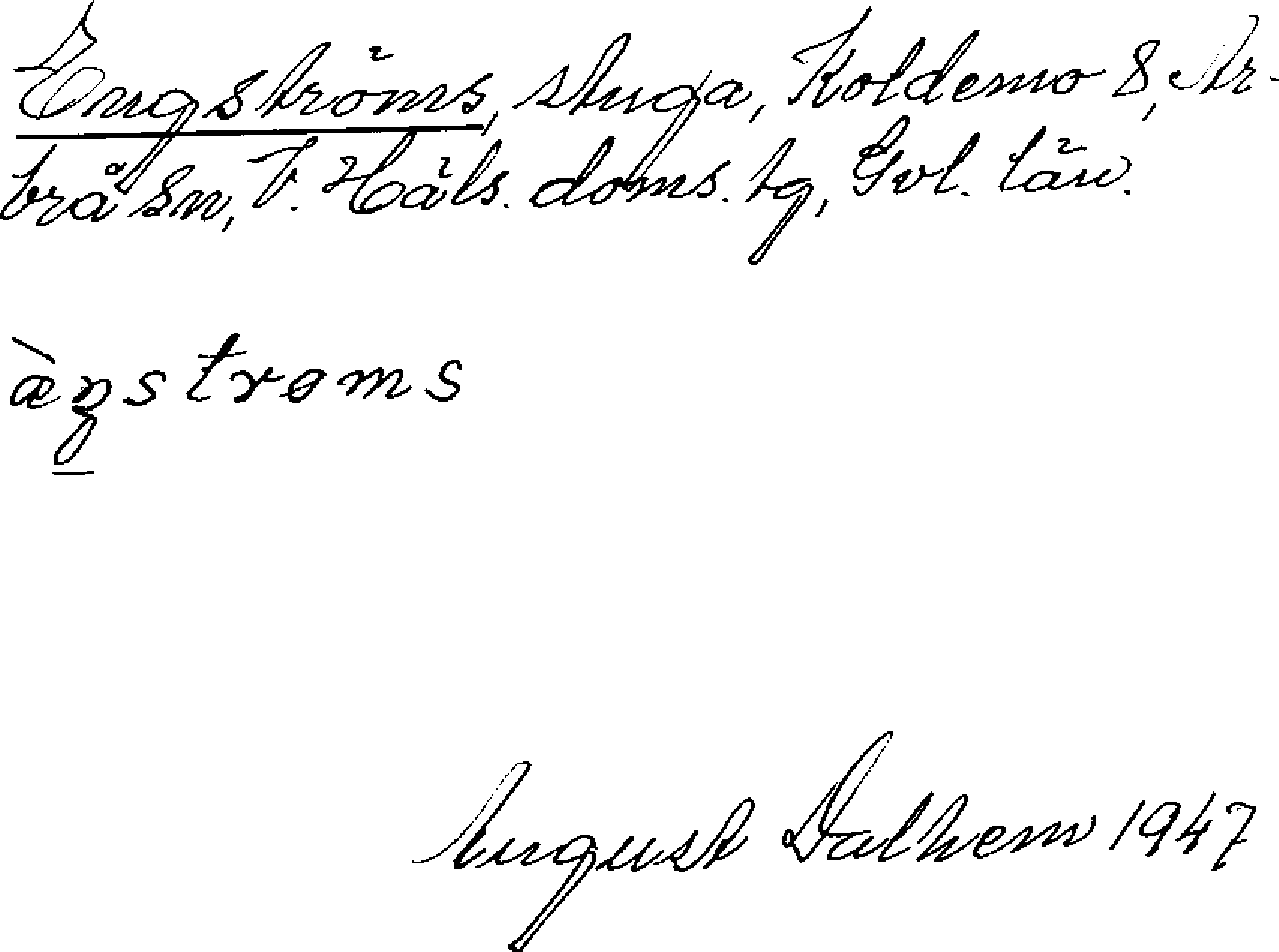 Engströms, stuga, Koldemo 8, Ar-
brå sn, V. Häls. doms. tg, Gvl. län.
æ̀ŋstrøms
August Dalhem 1947